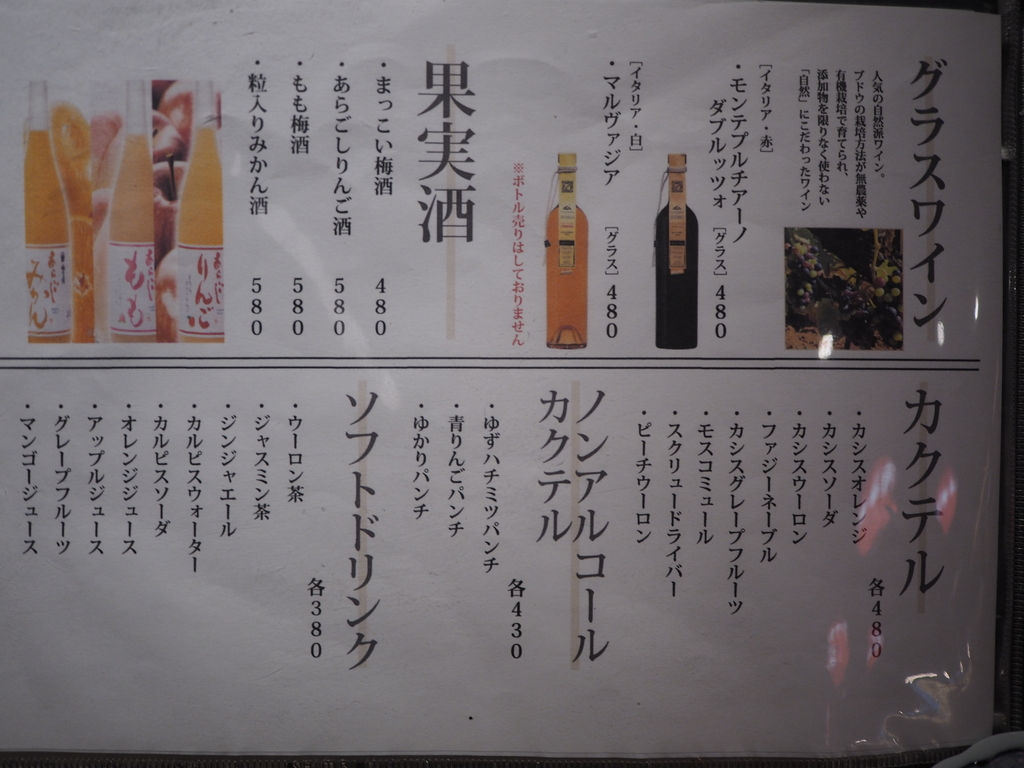 グラスワイン
人気の自然派ワイン。
ブドウの栽培方法が無農薬や
有機栽培で育てられ、
添加物を限りなく使わない
「自然」にこだわったワイン
[イタリア・赤]
・モンテプルチアーノ
ダブルッツォ [グラス] 480
[イタリア・白]
・マルヴァジア [グラス] 480
※ボトル売りはしておりません
果実酒
・まっこい梅酒 480
・あらごしりんご酒 580
・もも梅酒 580
・粒入りみかん酒 580
りんご
もも
みかん
カクテル
各480
・カシスオレンジ
・カシスソーダ
・カシスウーロン
・ファジーネーブル
・カシスグレープフルーツ
・モスコミュール
・スクリュードライバー
・ピーチウーロン
ノンアルコール
カクテル
各430
・ゆずハチミツパンチ
・青りんごパンチ
・ゆかりパンチ
ソフトドリンク
各380
・ウーロン茶
・ジャスミン茶
・ジンジャエール
・カルピスウォーター
・カルピスソーダ
・オレンジジュース
・アップルジュース
・グレープフルーツ
・マンゴージュース